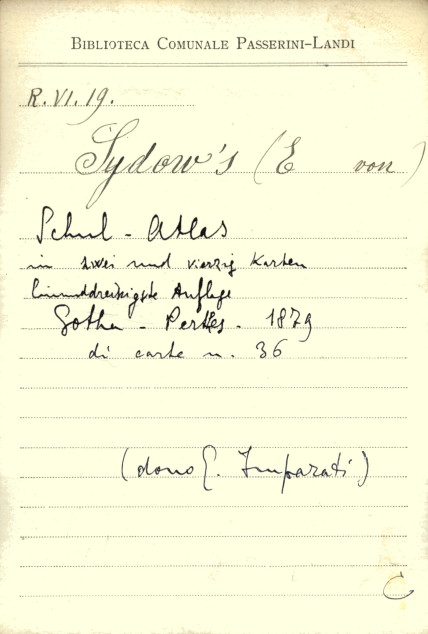 BIBLIOTECA COMUNALE PASSERINI-LANDI
R. VI. 19.
Sydow's (E von)
Schul - Atlas
in zwei und vierzig Karten
Einunddreizigste Auflage
Gotha - Perthes - 1879
di carte n. 36
(dono E. Imparati)
C